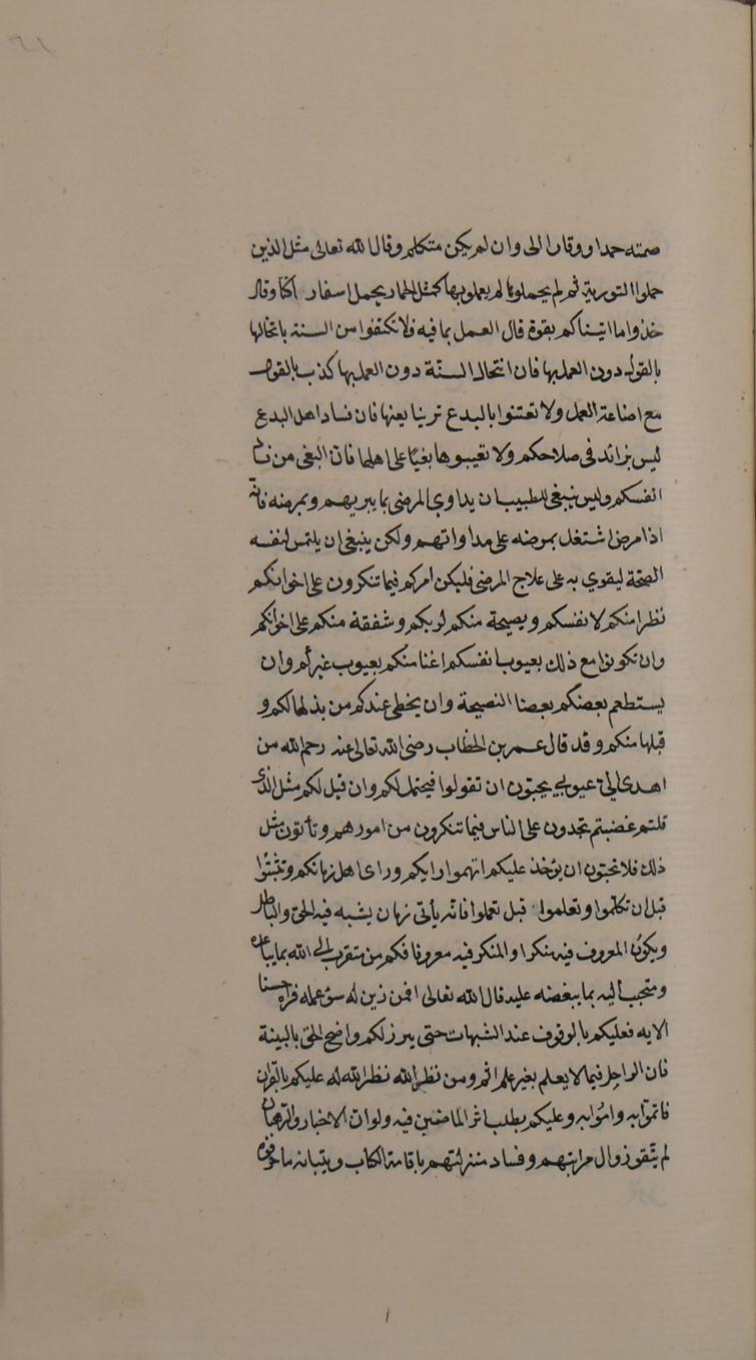 ٦١
صمته حمدا ووقارا الى وان لم يكن متكلم وقال الله تعالى مثل الذين
حملوا التورية ثم لم يحملوها لم يعملوا بها كمثل الحمار يحمل اسفار وقال
خذوا ما اتيناكم بقوة قال العمل بما فيه فلا تكتفوا من السنة بانتحالها
بالقول دون العمل بها فان انتحال السنة دون العمل بها كذب بالقول
مع اضاعة العمل ولا تعتنوا بالبدع تزينا بعنها فان فساد اهل البدع
ليس بزائد فى صلاحكم ولا تعيبوها بغيا على اهلها فان البغى من فساد
انفسكم وليس ينبغى للطبيب ان يداوى المرضى بما يبريهم ويمرضه فانه
اذا مرض اشتغل بمرضه على مداواتهم ولكن ينبغى ان يلتمس لنفسه
الصحة ليقوي به على علاج المرضى فليكن امركم فيما تنكرون على اخوانكم
نظرا منكم لانفسكم ونصيحة منكم لربكم وشفقة منكم على اخوانكم
وان تكونوا مع ذلك بعيوب انفسكم اغنا منكم بعيوب غيركم وان
يستطعم بعضكم بعضا النصيحة وان يخطى عندكم من بذلها لكم و
قبلها منكم وقد قال عمر بن الخطاب رضى الله تعالى عنه رحم الله من
اهدى الي عيوبي يحبون ان تقولوا فيحتمل لكم وان قيل لكم مثل الذى
قلتم غضبتم تجدون على الناس فيما تنكرون من امورهم وتأتون مثل
ذلك فلا تحبون ان يوخذ عليكم اتهموا رايكم وراى اهل زمانكم وتثبتوا
قبل ان تكلموا وتعلموا قبل تعملوا فانه يأتى زمان يشبه فيه الحق والباطل
ويكون المعروف فيه منكرا والمنكر فيه معروفا فكم من متقرب الى الله بما يباعده
ومتحبب اليه بما يبغضه عليه قال الله تعالى افمن زين له سوء عمله فراه حسنا
الايه فعليكم بالوقوف عند الشبهات حتى يبرز لكم واضح الحق بالبينة
فان الداخل فيما لا يعلم بغير علم اثم ومن نظر لله نظر الله له عليكم بالقران
فاتموا به واموا به وعليكم بطلب اثر الماضين فيه ولو ان الاحبار والرهبان
لم يتقوا زوال مراتبهم وفساد منزلتهم باقامة الكتاب وبتبيانه ما حرفوه